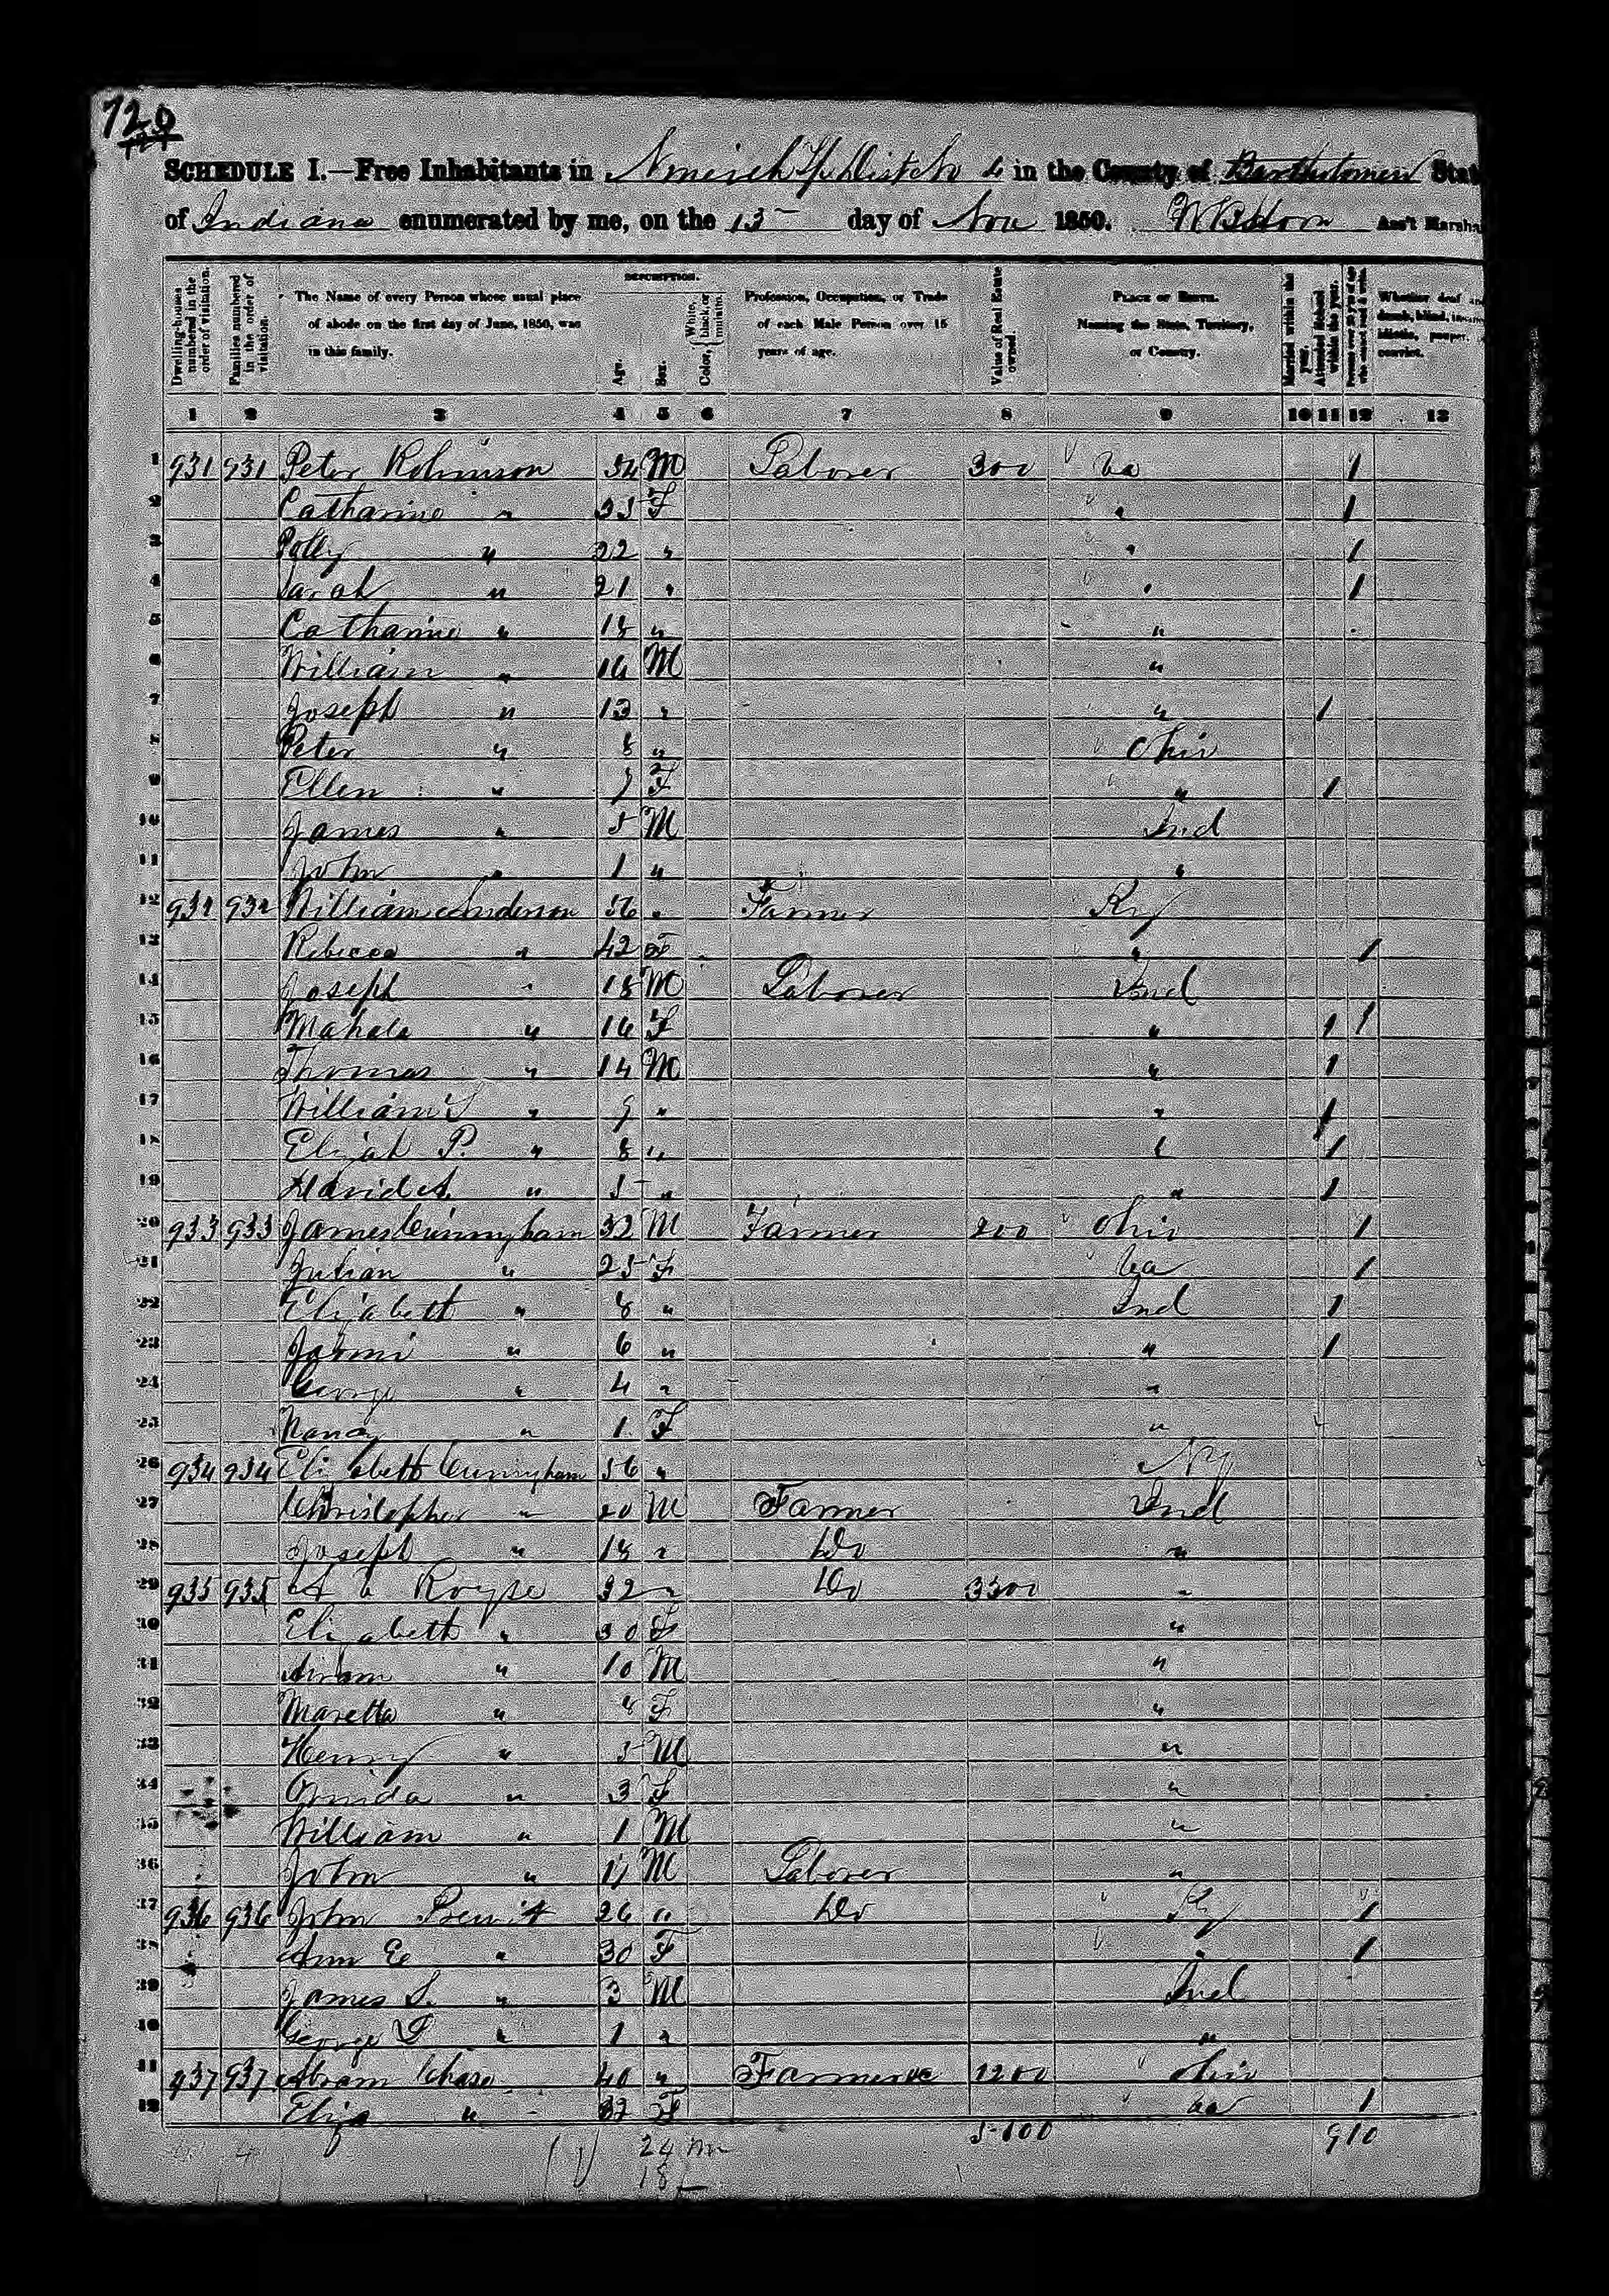 720
SCHEDULE I.—Free Inhabitants in Dist No 4 in the County of Bartholomew Stat
of Indiana enumerated by me, on the 13 day of Nov 1850. Ass't Marsha
Dwelling-houses numbered in the order of visitation.
Families numbered in the order of visitation.
The Name of every Person whose usual place of abode on the first day of June, 1850, was in this family.
DESCRIPTION.
Age.
Sex.
Color, White, black, or mulatto.
Profession, Occupation, or Trade of each Male Person over 15 years of age.
Value of Real Estate owned.
PLACE OF BIRTH. Naming the State, Territory, or Country.
Married within the year.
Attended School within the year.
Persons over 20 y'rs of age who cannot read & write.
Whether deaf and dumb, blind, insane, idiotic, pauper, convict.
1 2 3 4 5 6 7 8 9 10 11 12 13
1 931 931 Peter Robinson 54 M Laborer 300 Va 1
2 Catharine " F " 1
3 Polly " 22 " " 1
4 Sarah " 21 " " 1
5 Catharine " 18 " "
6 William " M "
7 Joseph " 13 " " 1
8 Peter " 8 " Ohio
9 Ellen " 7 F " 1
10 James " 5 M Ind
11 John " 1 " "
12 932 932 William Anderson 56 " Farmer Ky
13 Rebecca " 42 F " 1
14 Joseph " 18 M Laborer Ind
15 Mahala " 16 F " 1 1
16 Thomas " 14 M " 1
17 William S " 9 " " 1
18 Elijah P. " 8 " " 1
19 David A. " 5 " " 1
20 933 933 James Cunningham 32 M Farmer 200 Ohio 1
21 Julian " 25 F Va 1
22 Elizabeth " 8 " Ind 1
23 " 6 " " 1
24 George " 4 " "
25 Nancy " 1 F "
26 934 934 Elizabeth Cunningham 56 "
27 Christopher " 20 M Farmer Ind
28 Joseph " 18 " Do "
29 935 935 Royse 32 " Do 3300 "
30 Elizabeth " 30 F "
31 " 10 M "
32 Maretta " 8 F "
33 Henry " 5 M "
34 " 3 F "
35 William " 1 M "
36 John " 17 M Laborer "
37 936 936 John 26 " Do Ky 1
38 Ann E " 30 F " 1
39 James S. " 3 M Ind
40 George " 1 " "
41 937 937 Abram Chase 40 " Farmer 1200 Ohio
42 Eliza " 37 F Va 1
24 m 5100 9 10
18 f